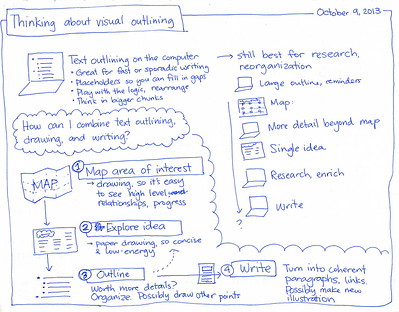 Thinking about visual outlining
October 9, 2013
Text outlining on the computer
• Great for fast or sporadic writing
• Placeholders so you can fill in gaps
• Play with the logic, rearrange
• Think in bigger chunks
→ still best for research,
reorganization
Large outline, reminders
Map
More detail beyond map
Single idea
Research enrich
Write
?
How can I combine text outlining,
drawing, and writing?
MAP
1 Map area of interest
→ drawing, so it's easy
to see high level
relationships, progress
2 Explore idea
→ paper drawing, so concise
& low-energy
3 Outline
Worth more details?
Organize. Possibly draw other points
4 Write
Turn into coherent
paragraphs, links.
Possibly make new
illustration